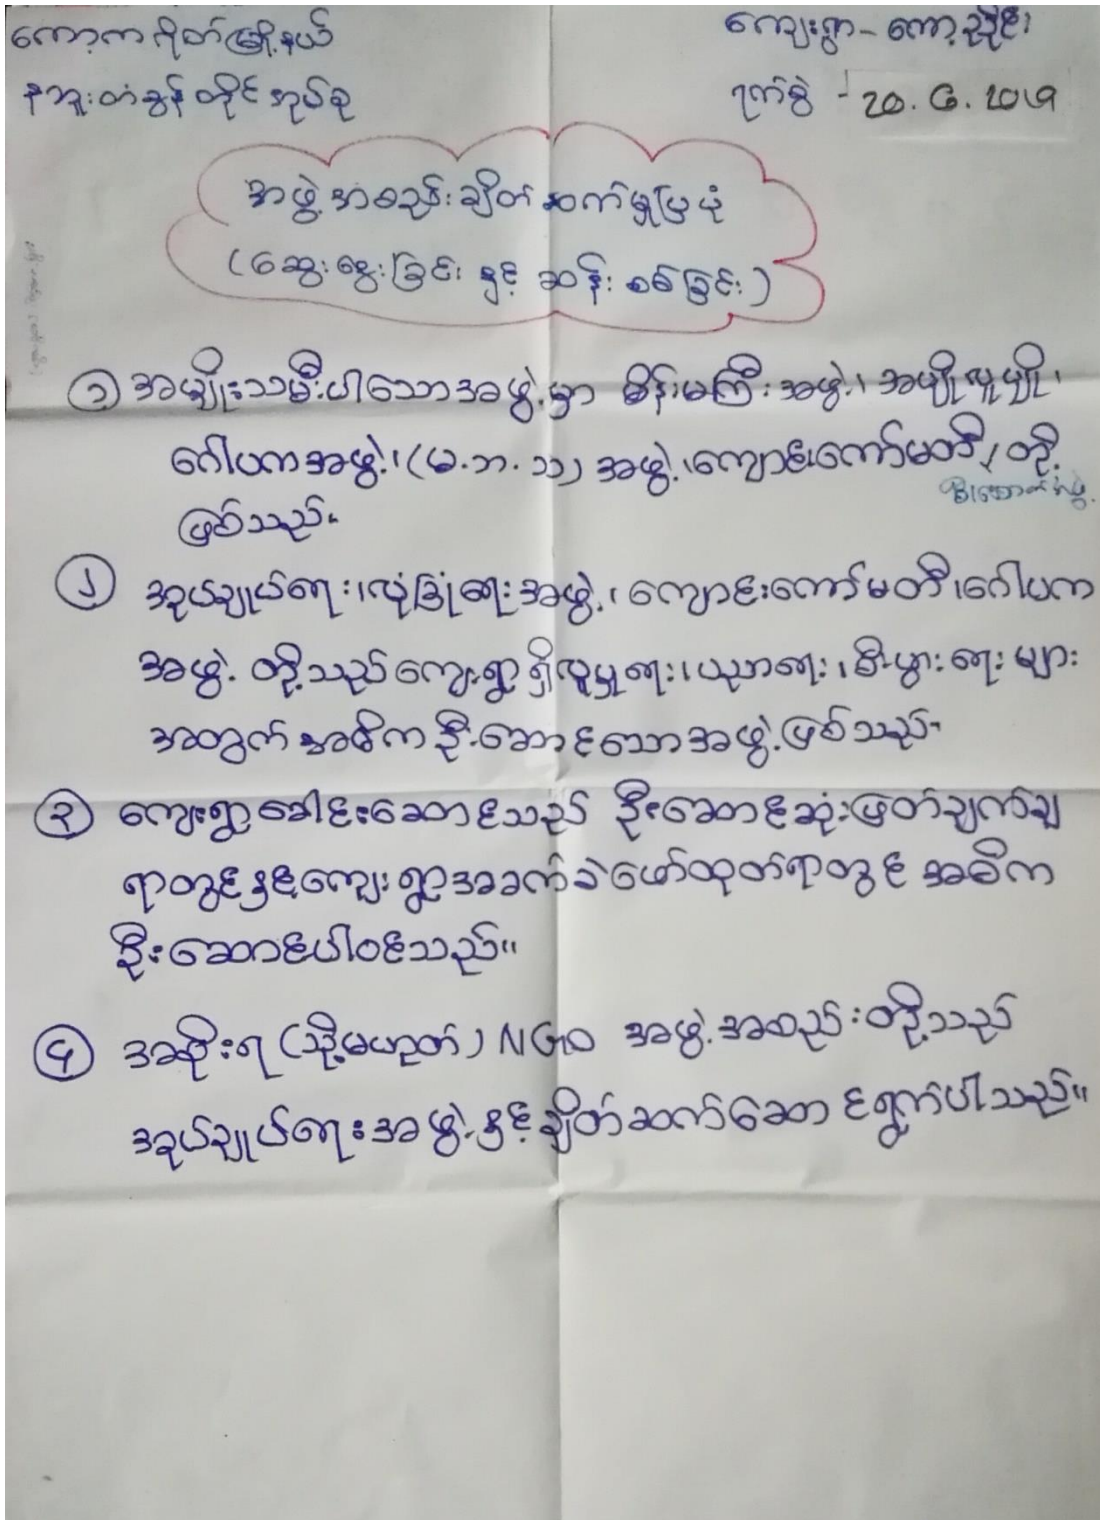 ကော့ကရိတ်မြို့နယ် ကျေးရွာ - ကော့ညိုင်း
နဘူးတံခွန်တိုင်အုပ်စု ရက်စွဲ - 20.6.2019
အဖွဲ့အစည်းချိတ်ဆက်မှုပြပုံ
(ဆွေးနွေးခြင်း နှင့် ဆန်းစစ်ခြင်း)
၁ အမျိုးသမီးပါသောအဖွဲ့မှာ မိန်းမကြီးအဖွဲ့၊ အပျိုလူပျို၊
ဂေါပကအဖွဲ့၊ (မ.ဘ.သ) အဖွဲ့၊ ကျောင်းကော်မတီ၊ တို့
မီးသတ်အဖွဲ့
ဖြစ်သည်။
၂ အုပ်ချုပ်ရေး၊ လုံခြုံရေးအဖွဲ့၊ ကျောင်းကော်မတီ၊ ဂေါပက
အဖွဲ့ တို့သည်ကျေးရွာရှိလူမှုရေး၊ ပညာရေး၊ စီးပွားရေးများ
အတွက် အဓိကဦးဆောင်သောအဖွဲ့ဖြစ်သည်။
၃ ကျေးရွာခေါင်းဆောင်သည် ဦးဆောင်ဆုံးဖြတ်ချက်ချ
ရာတွင်နှင့်ကျေးရွာအခက်ခဲဖော်ထုတ်ရာတွင် အဓိက
ဦးဆောင်ပါဝင်သည်။
၄ အစိုးရ (သို့မဟုတ်) NGO အဖွဲ့အစည်းတို့သည်
အုပ်ချုပ်ရေးအဖွဲ့နှင့်ချိတ်ဆက်ဆောင်ရွက်ပါသည်။